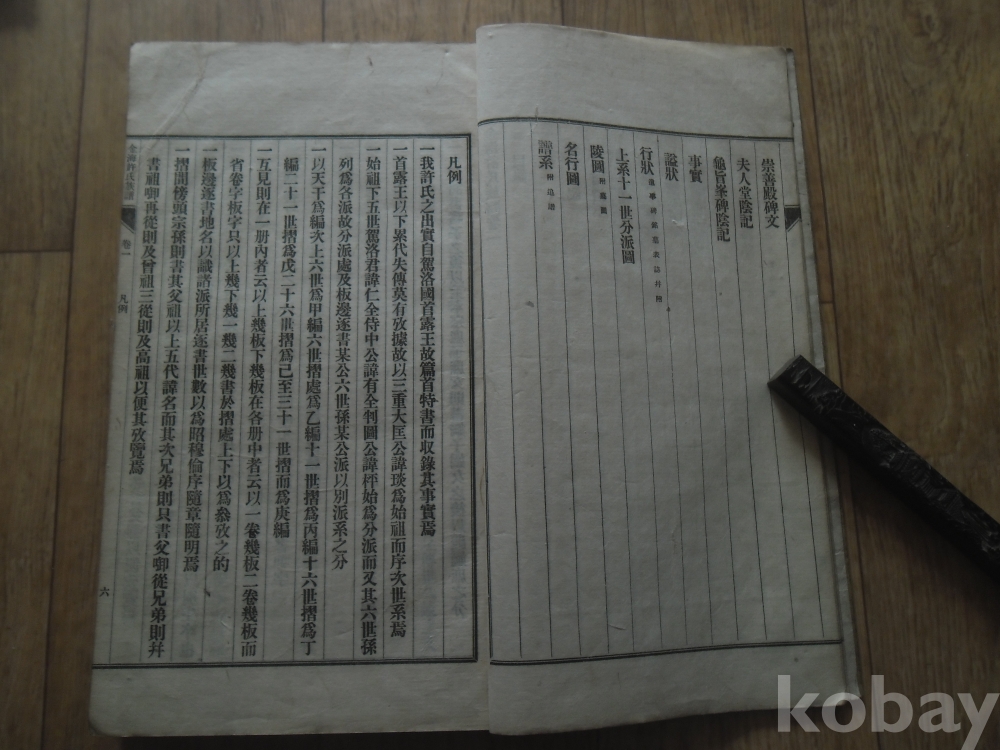 崇善殿碑文
夫人堂陰記
龜旨峯碑陰記
事實
謚狀
行狀
上系十一世分派圖
陵圖
名行圖
譜系 附追譜
凡例
一我許氏之出實自駕洛國首露王故篇首特書而收錄其事實焉
一首露王以下累代失傳莫有攷據故以三重大匡公諱琰爲始祖而序次世系焉
一始祖下五世駕洛君諱仁全侍中公諱有全判圖公諱枰始爲分派而又其六世孫
列爲各派故分派處及板邊逐書某公六世孫某公派以別派系之分
一以天干爲編次上六世爲甲編六世摺處爲乙編十一世摺爲丙編十六世摺爲丁
編二十一世摺爲戊二十六世摺爲己至三十一世摺而爲庚編
一互見則在一册內者云以上幾板下幾板在各册中者云以一卷幾板二卷幾板而
省卷字板字只以上幾下幾一幾二幾書於摺處上下以爲叅攷之的
一板邊逐書地名以識諸派所居逐書世數以爲昭穆倫序隨章隨明焉
一摺間傍頭宗孫則書其父祖以上五代諱名而其次兄弟則只書父啣從兄弟則幷
書祖啣再從則及曾祖三從則及高祖以便其攷覽焉
金海許氏族譜
卷一
凡例
六
kobay